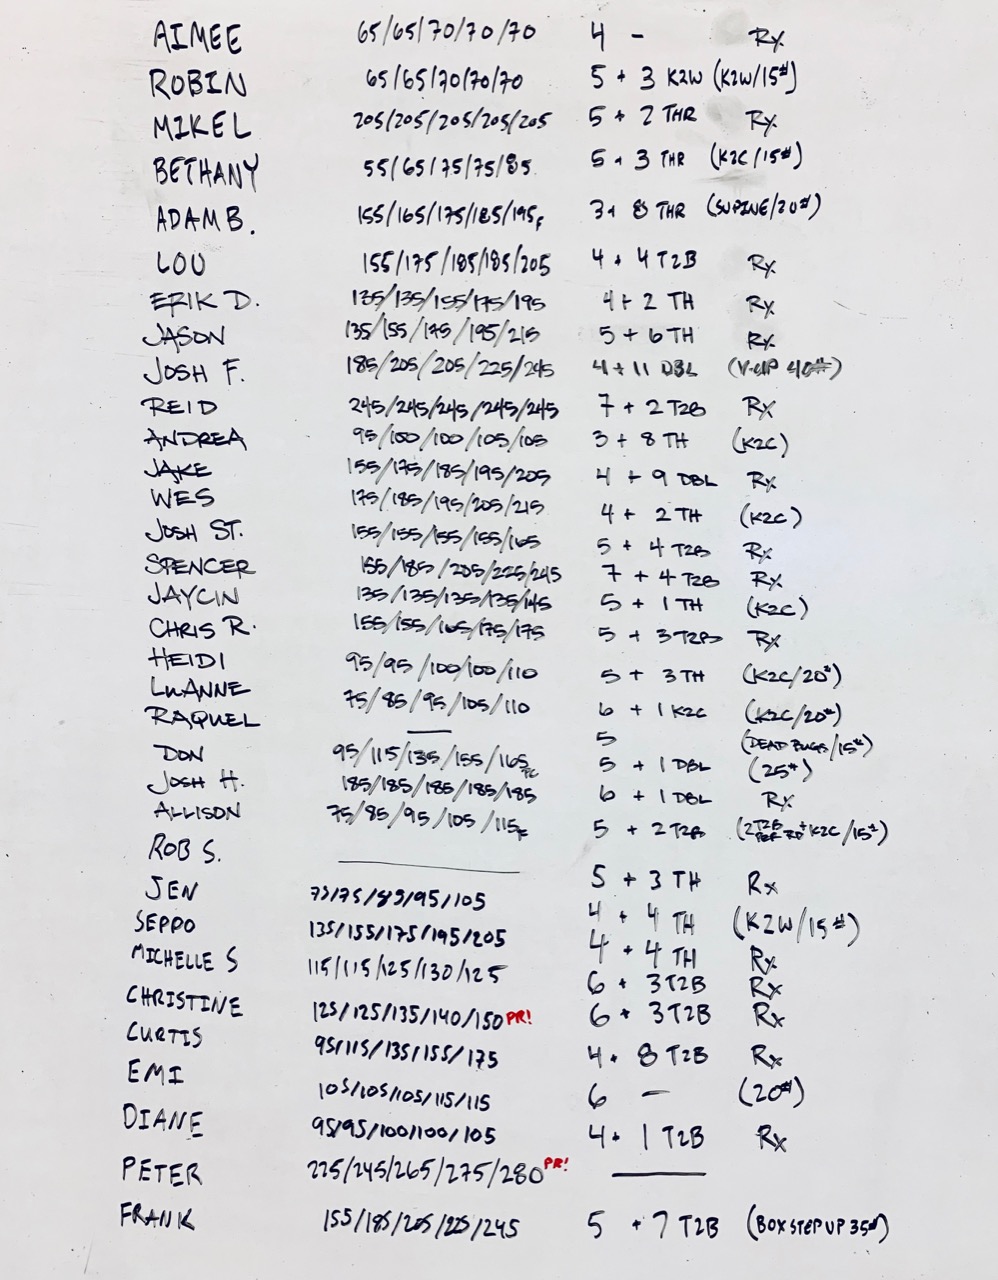 AIMEE 65/65/70/70/70 4 - Rx
ROBIN 65/65/70/70/70 5 + 3 K2W (K2W/15#)
MIKEL 205/205/205/205/205 5 + 2 THR Rx
BETHANY 55/65/75/75/85 5 + 3 THR (K2C/15#)
ADAM B. 155/165/175/185/195F 3 + 8 THR (SUPINE/20#)
LOU 155/175/185/185/205 4 + 4 T2B Rx
ERIK D. 135/135/155/175/195 4 + 2 TH Rx
JASON 135/155/175/195/215 5 + 6 TH Rx
JOSH F. 185/205/205/225/245 4 + 11 DBL (V-UP 40#)
REID 245/245/245/245/245 7 + 2 T2B Rx
ANDREA 95/100/100/105/105 3 + 8 TH (K2C)
JAKE 155/175/185/195/205 4 + 9 DBL Rx
WES 175/185/195/205/215 4 + 2 TH (K2C)
JOSH ST. 155/155/155/155/165 5 + 4 T2B Rx
SPENCER 155/185/205/225/245 7 + 4 T2B Rx
JAYCIN 135/135/135/135/145 5 + 1 TH (K2C)
CHRIS R. 155/155/165/175/175 5 + 3 T2B Rx
HEIDI 95/95/100/100/110 5 + 3 TH (K2C/20#)
LUANNE 75/85/95/105/110 6 + 1 K2C (K2C/20#)
RAQUEL — 5 (DEAD BUGS/15#)
DON 95/115/135/155/165 5 + 1 DBL (25#)
JOSH H. 185/185/185/185/185 6 + 1 DBL Rx
ALLISON 75/85/95/105/115F 5 + 2 T2B (2 T2B PER RD + K2C/15#)
ROB S. — 5 + 3 TH Rx
JEN 75/75/85/95/105 4 + 4 TH (K2W/15#)
SEPPO 135/155/175/195/205 4 + 4 TH Rx
MICHELLE S 115/115/125/130/125 6 + 3 T2B Rx
CHRISTINE 125/125/135/140/150 PR! 6 + 3 T2B Rx
CURTIS 95/115/135/155/175 4 + 8 T2B Rx
EMI 105/105/105/115/115 6 — (20#)
DIANE 95/95/100/100/105 4 + 1 T2B Rx
PETER 225/245/265/275/280 PR! —
FRANK 155/185/205/225/245 5 + 7 T2B (BOX STEP UP 35#)